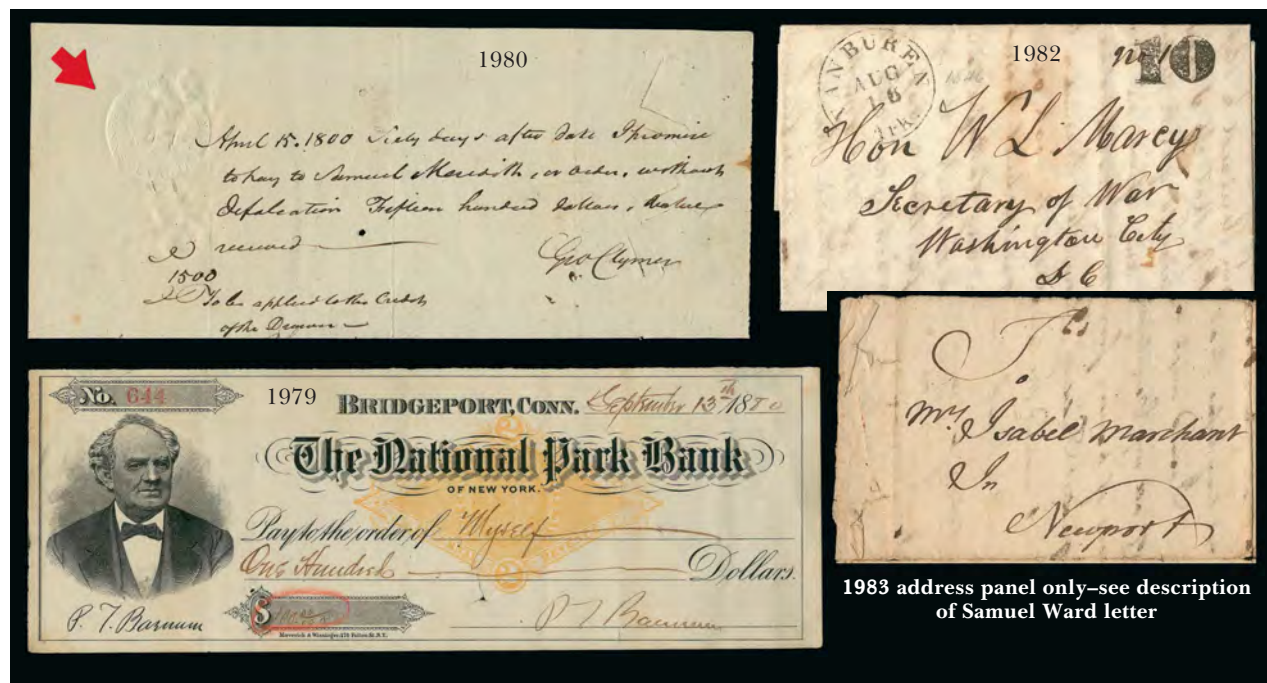 1980
April 15. 1800 Sixty days after date I promise
to pay to Samuel Meredith, or order, without
defalcation Fifteen hundred dollars, value
received
Geo Clymer
1500
To be applied to the Credit
of the Drawer
1982
VANBUREN
AUG
18
Ark.
10
Hon W L Marcy
Secretary of War
Washington City
D C
No. 644
1979
BRIDGEPORT, CONN. September 13th 1880
The National Park Bank
OF NEW YORK.
Pay to the order of Myself
One Hundred Dollars.
$100
P. T. Barnum
P. T. Barnum
Maverick & Wissinger, 176 Fulton St. N.Y.
To
Mrs Isabel Marchant
In
Newport
1983 address panel only–see description
of Samuel Ward letter